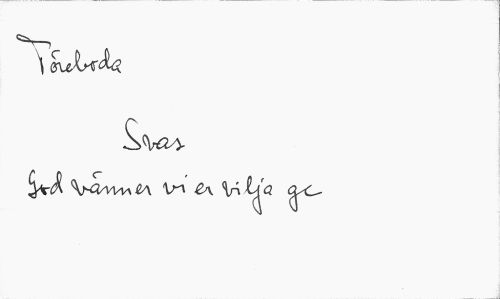 Töreboda
Svar
God vänner vi er vilja ge